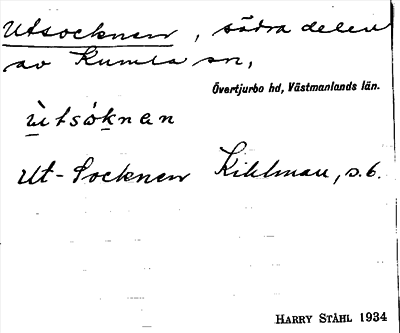 Utsocknen, södra delen
av Kumla sn,
Övertjurbo hd, Västmanlands län.
ùtsóknan
Ut-Socknen Kihlman, s. 6.
HARRY STÅHL 1934